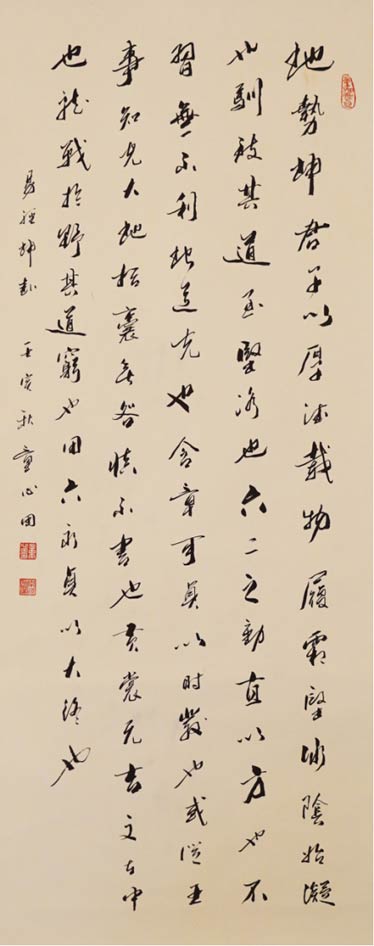 地勢坤君子以厚德載物履霜堅冰陰始凝
也馴致其道至堅冰也六二之動直以方也不
習無不利地道光也含章可貞以時發也或從王
事知光大地括囊無咎慎不害也黃裳元吉文在中
也龍戰於野其道窮也用六永貞以大終也
易經坤卦 壬寅秋 童心田